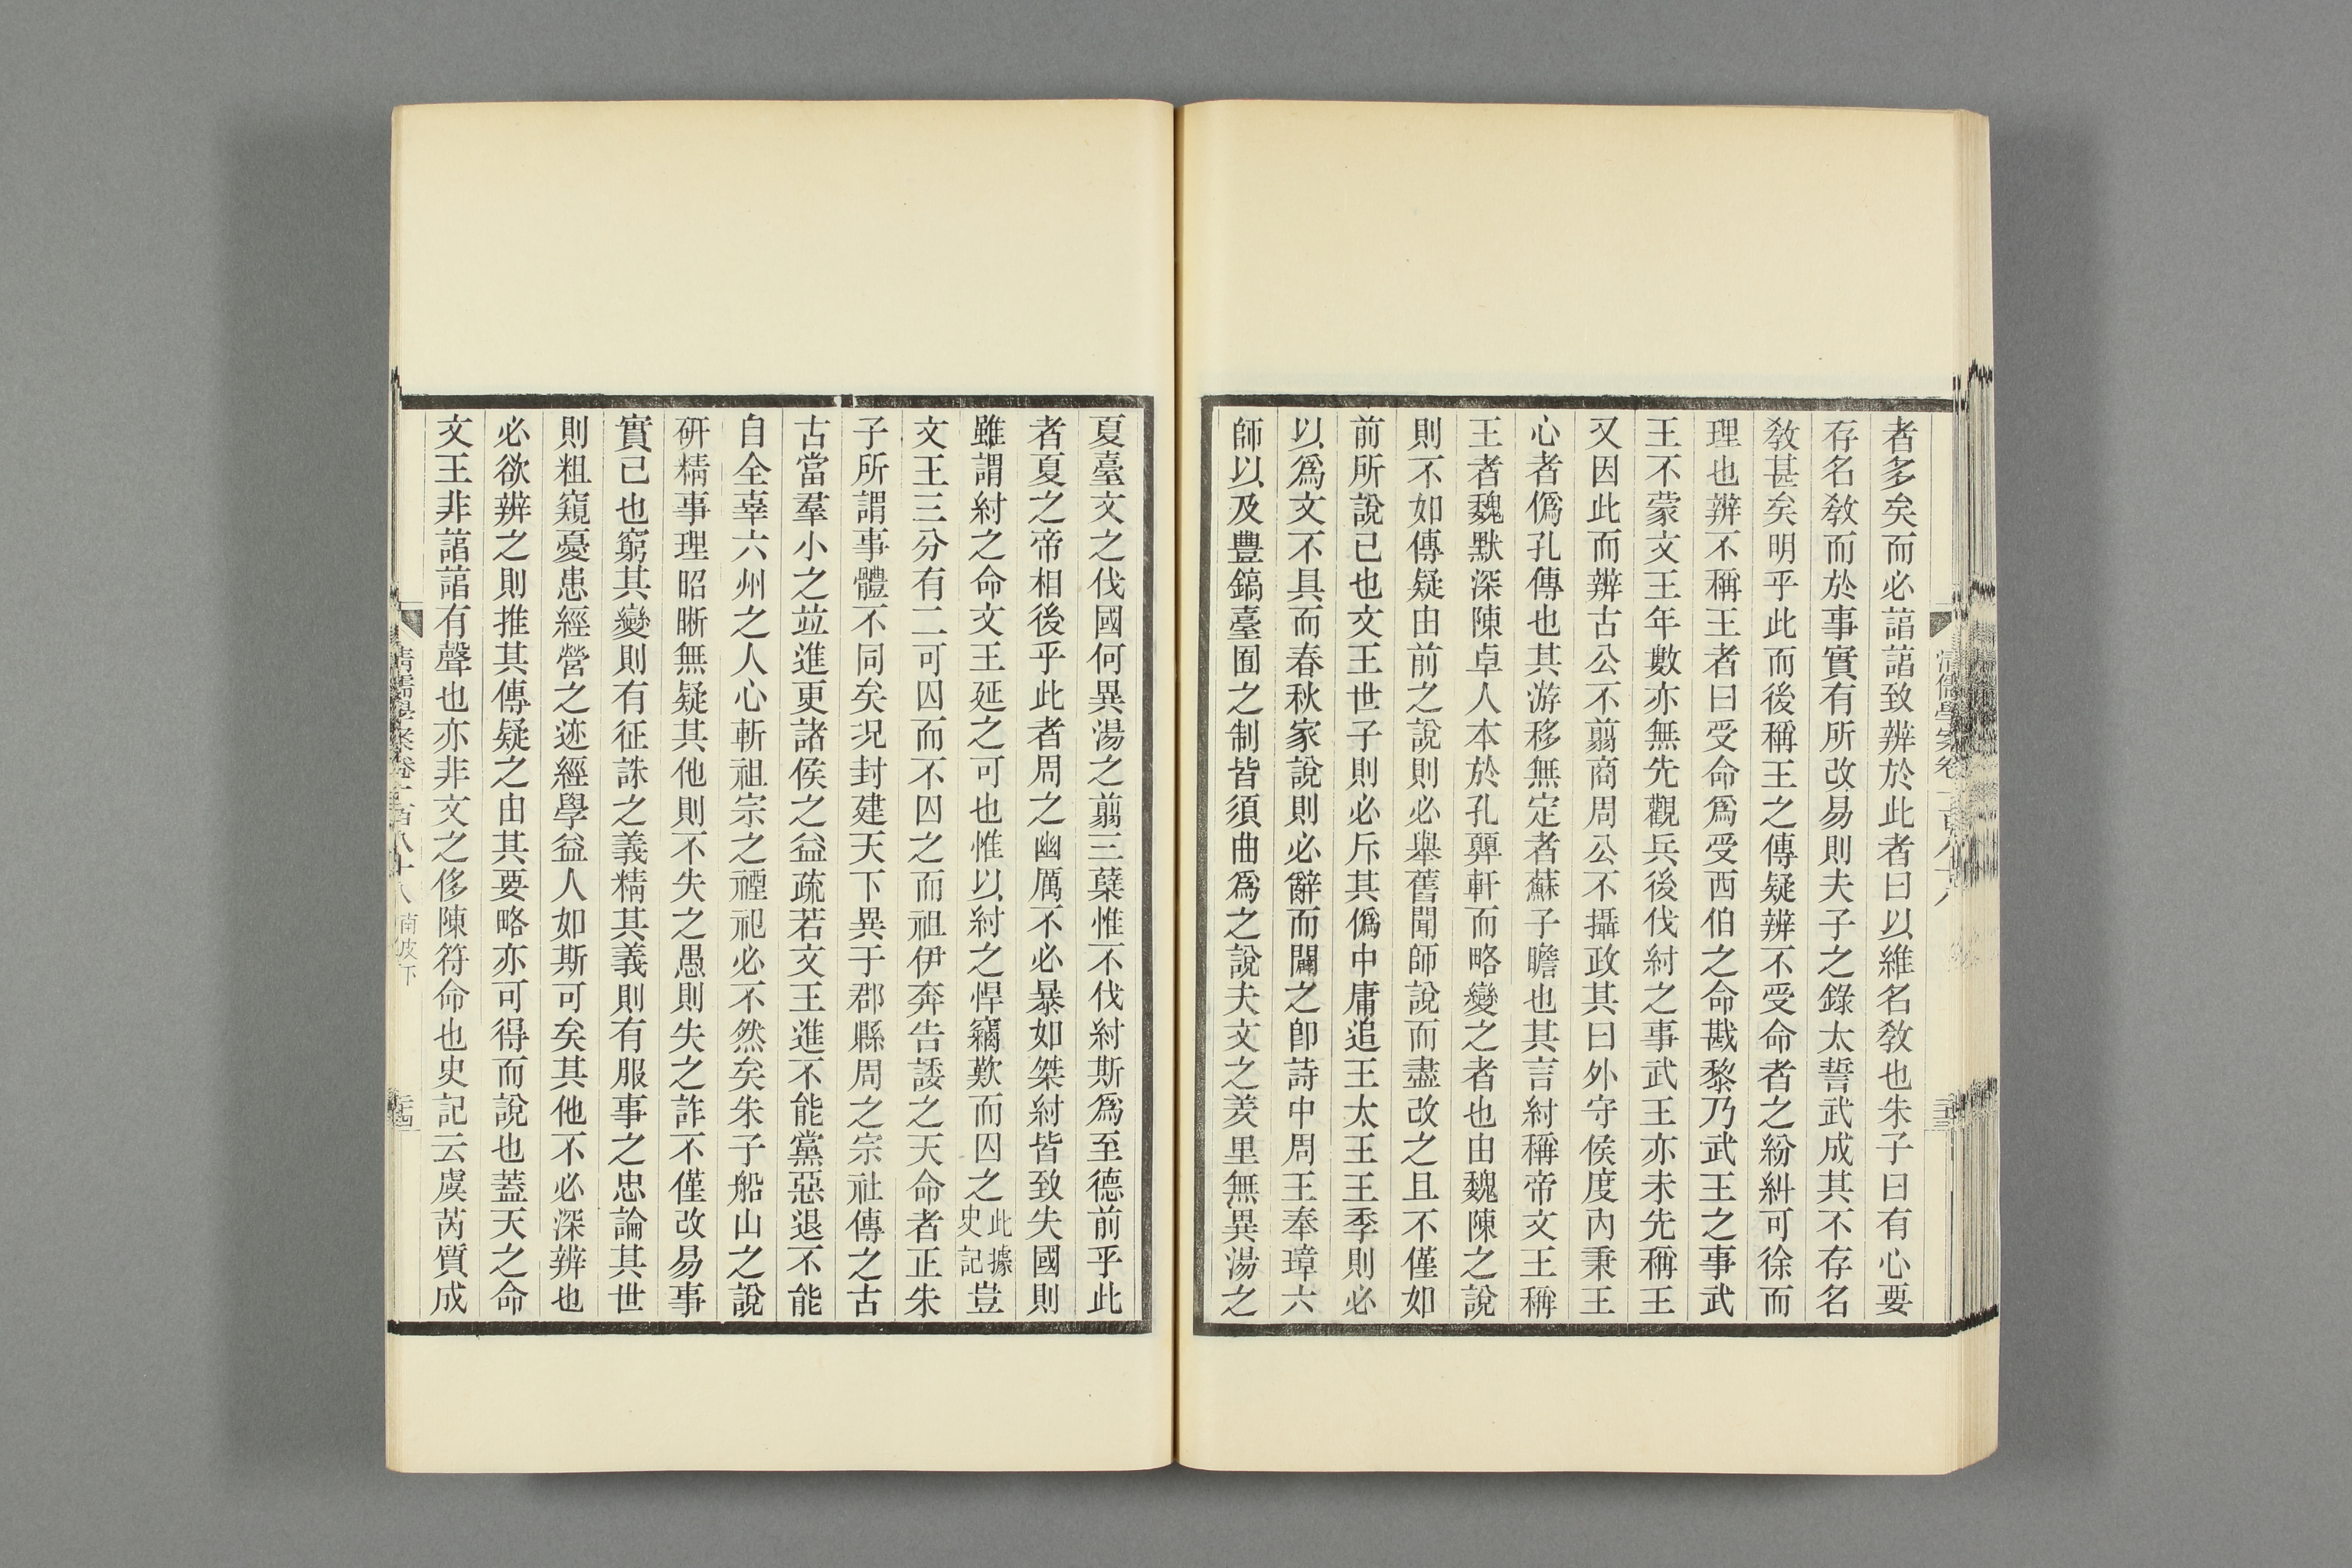 者多矣而必譆譆致辨於此者曰以維名敎也朱子曰有心要
存名敎而於事實有所改易則夫子之錄太誓武成其不存名
敎甚矣明乎此而後稱王之傳疑辨不受命者之紛糾可徐而
理也辨不稱王者曰受命爲受西伯之命戡黎乃武王之事武
王不蒙文王年數亦無先觀兵後伐紂之事武王亦未先稱王
又因此而辨古公不翦商周公不攝政其曰外守侯度內秉王
心者僞孔傳也其游移無定者蘇子瞻也其言紂稱帝文王稱
王者魏默深陳卓人本於孔顨軒而略變之者也由魏陳之說
則不如傳疑由前之說則必舉舊聞師說而盡改之且不僅如
前所說已也文王世子則必斥其僞中庸追王太王王季則必
以爲文不具而春秋家說則必辭而闢之卽詩中周王奉璋六
師以及豐鎬臺囿之制皆須曲爲之說夫文之羑里無異湯之
夏臺文之伐國何異湯之翦三蘖惟不伐紂斯爲至德前乎此
者夏之帝相後乎此者周之幽厲不必暴如桀紂皆致失國則
雖謂紂之命文王延之可也惟以紂之悍竊歎而囚之此據史記豈
文王三分有二可囚而不囚之而祖伊奔告諉之天命者正朱
子所謂事體不同矣況封建天下異于郡縣周之宗社傳之古
古當羣小之竝進更諸侯之益疏若文王進不能黨惡退不能
自全辜六州之人心斬祖宗之禋祀必不然矣朱子船山之說
硏精事理昭晰無疑其他則不失之愚則失之詐不僅改易事
實已也窮其變則有征誅之義精其義則有服事之忠論其世
則粗窺憂患經營之迹經學益人如斯可矣其他不必深辨也
必欲辨之則推其傳疑之由其要略亦可得而說也蓋天之命
文王非譆譆有聲也亦非文之侈陳符命也史記云虞芮質成
清儒學案卷一百八十八 南皮下